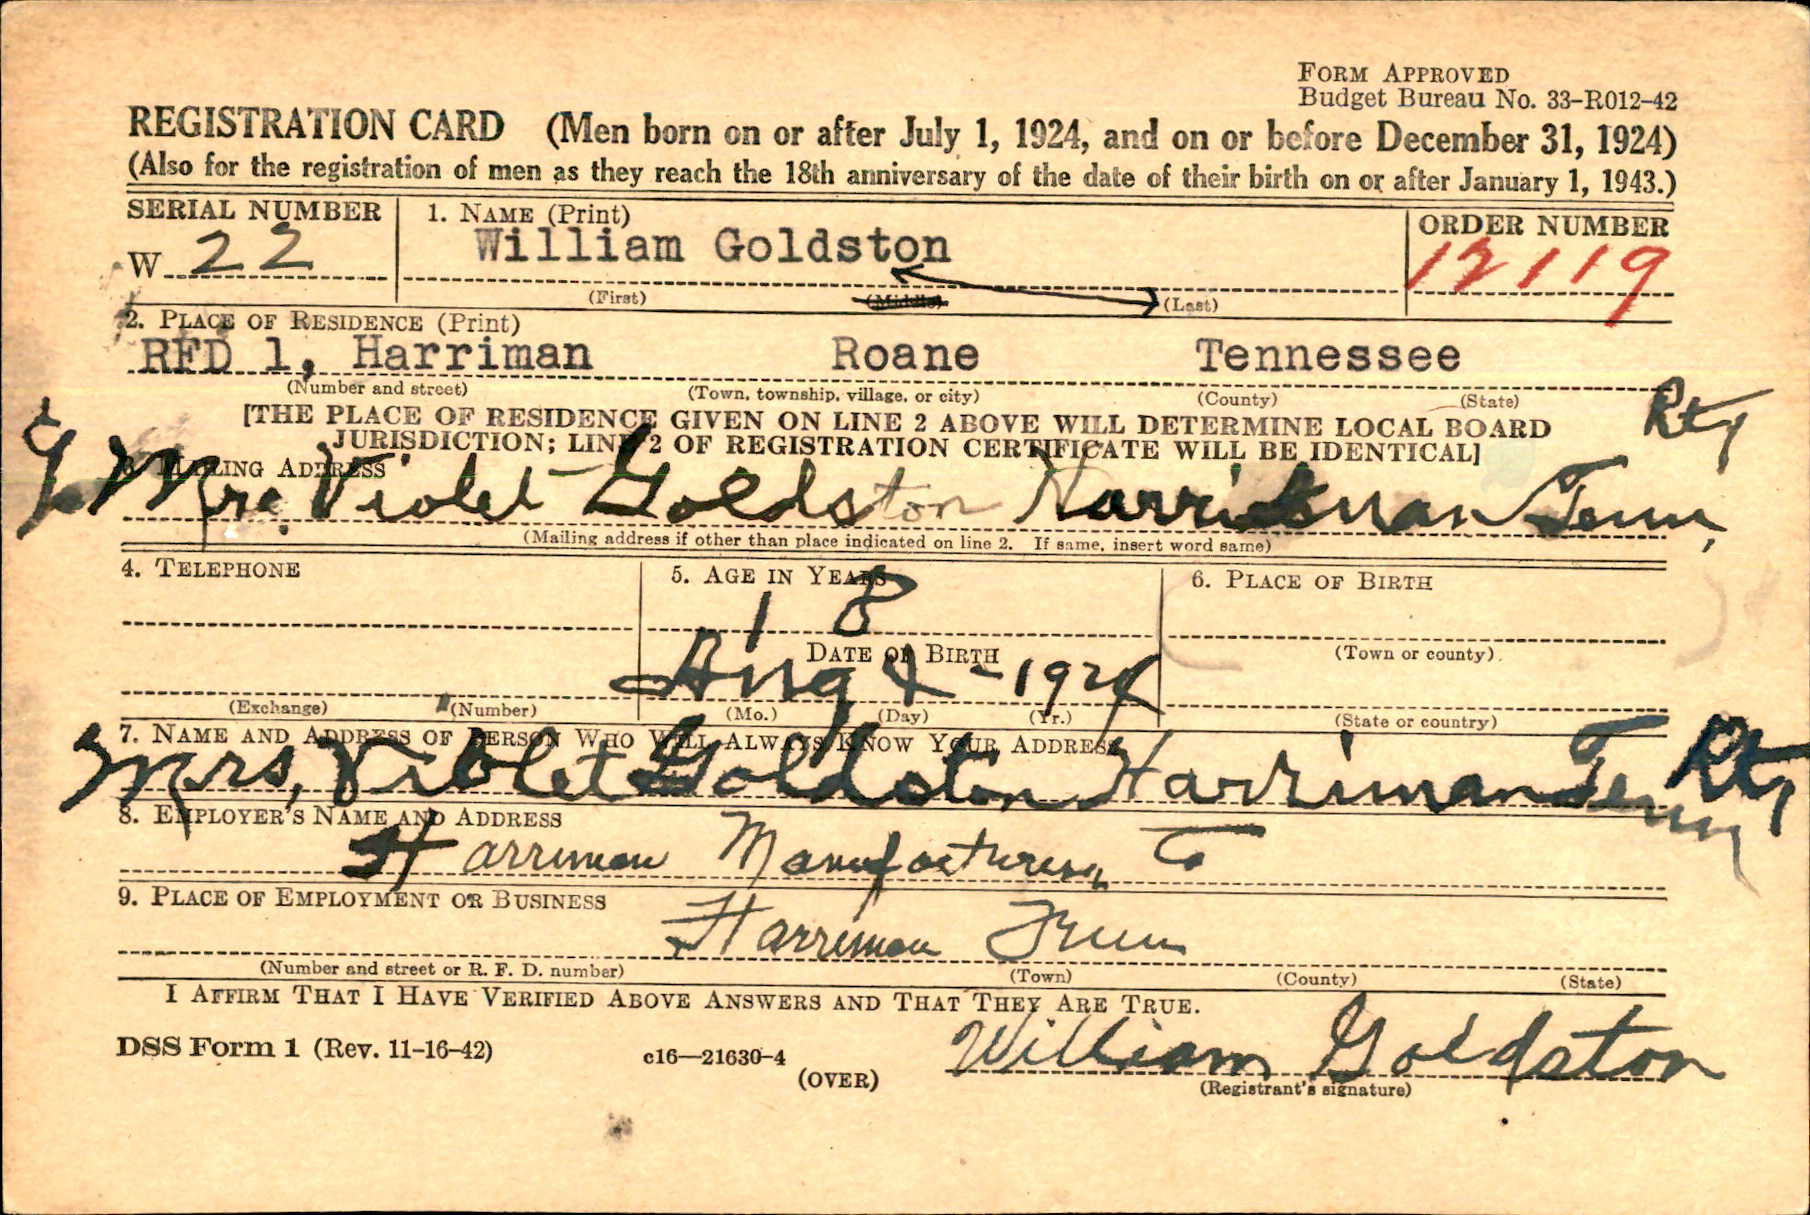 FORM APPROVED
Budget Bureau No. 33-R012-42
REGISTRATION CARD (Men born on or after July 1, 1924, and on or before December 31, 1924)
(Also for the registration of men as they reach the 18th anniversary of the date of their birth on or after January 1, 1943.)
SERIAL NUMBER 1. NAME (Print) ORDER NUMBER
W 22 William Goldston 12119
(First) (Middle) (Last)
2. PLACE OF RESIDENCE (Print)
RFD 1, Harriman Roane Tennessee
(Number and street) (Town, township, village, or city) (County) (State)
[THE PLACE OF RESIDENCE GIVEN ON LINE 2 ABOVE WILL DETERMINE LOCAL BOARD
JURISDICTION; LINE 2 OF REGISTRATION CERTIFICATE WILL BE IDENTICAL]
3. MAILING ADDRESS
Mrs. Violet Goldston Harriman Tenn,
(Mailing address if other than place indicated on line 2. If same, insert word same)
4. TELEPHONE 5. AGE IN YEARS 6. PLACE OF BIRTH
18
DATE OF BIRTH (Town or county)
Aug 1924
(Exchange) (Number) (Mo.) (Day) (Yr.) (State or country)
7. NAME AND ADDRESS OF PERSON WHO WILL ALWAYS KNOW YOUR ADDRESS
Mrs, Violet Goldston Harriman Tenn
8. EMPLOYER'S NAME AND ADDRESS
Harriman Manufacturing Co
9. PLACE OF EMPLOYMENT OR BUSINESS
Harriman Tenn
(Number and street or R. F. D. number) (Town) (County) (State)
I AFFIRM THAT I HAVE VERIFIED ABOVE ANSWERS AND THAT THEY ARE TRUE.
DSS Form 1 (Rev. 11-16-42) c16—21630-4 William Goldston
(OVER) (Registrant's signature)